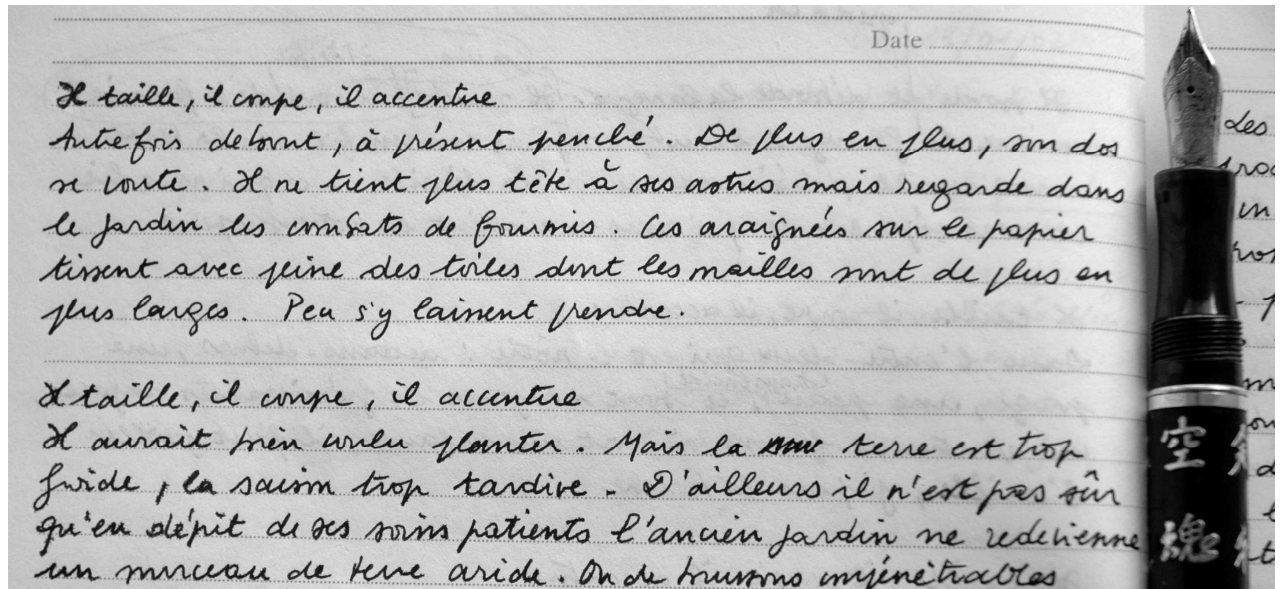 Date
Il taille, il coupe, il accentue
Autrefois debout, à présent penché. De plus en plus, son dos
se voute. Il ne tient plus tête à ses astres mais regarde dans
le jardin les combats de fourmis. Ces araignées sur le papier
tissent avec peine des toiles dont les mailles sont de plus en
plus larges. Peu s'y laissent prendre.
Il taille, il coupe, il accentue
Il aurait bien voulu planter. Mais la terre est trop
froide, la saison trop tardive. D'ailleurs il n'est pas sûr
qu'en dépit de ses soins patients l'ancien jardin ne redevienne
un morceau de terre aride. Ou de buissons impénétrables
Les
un
空
魂